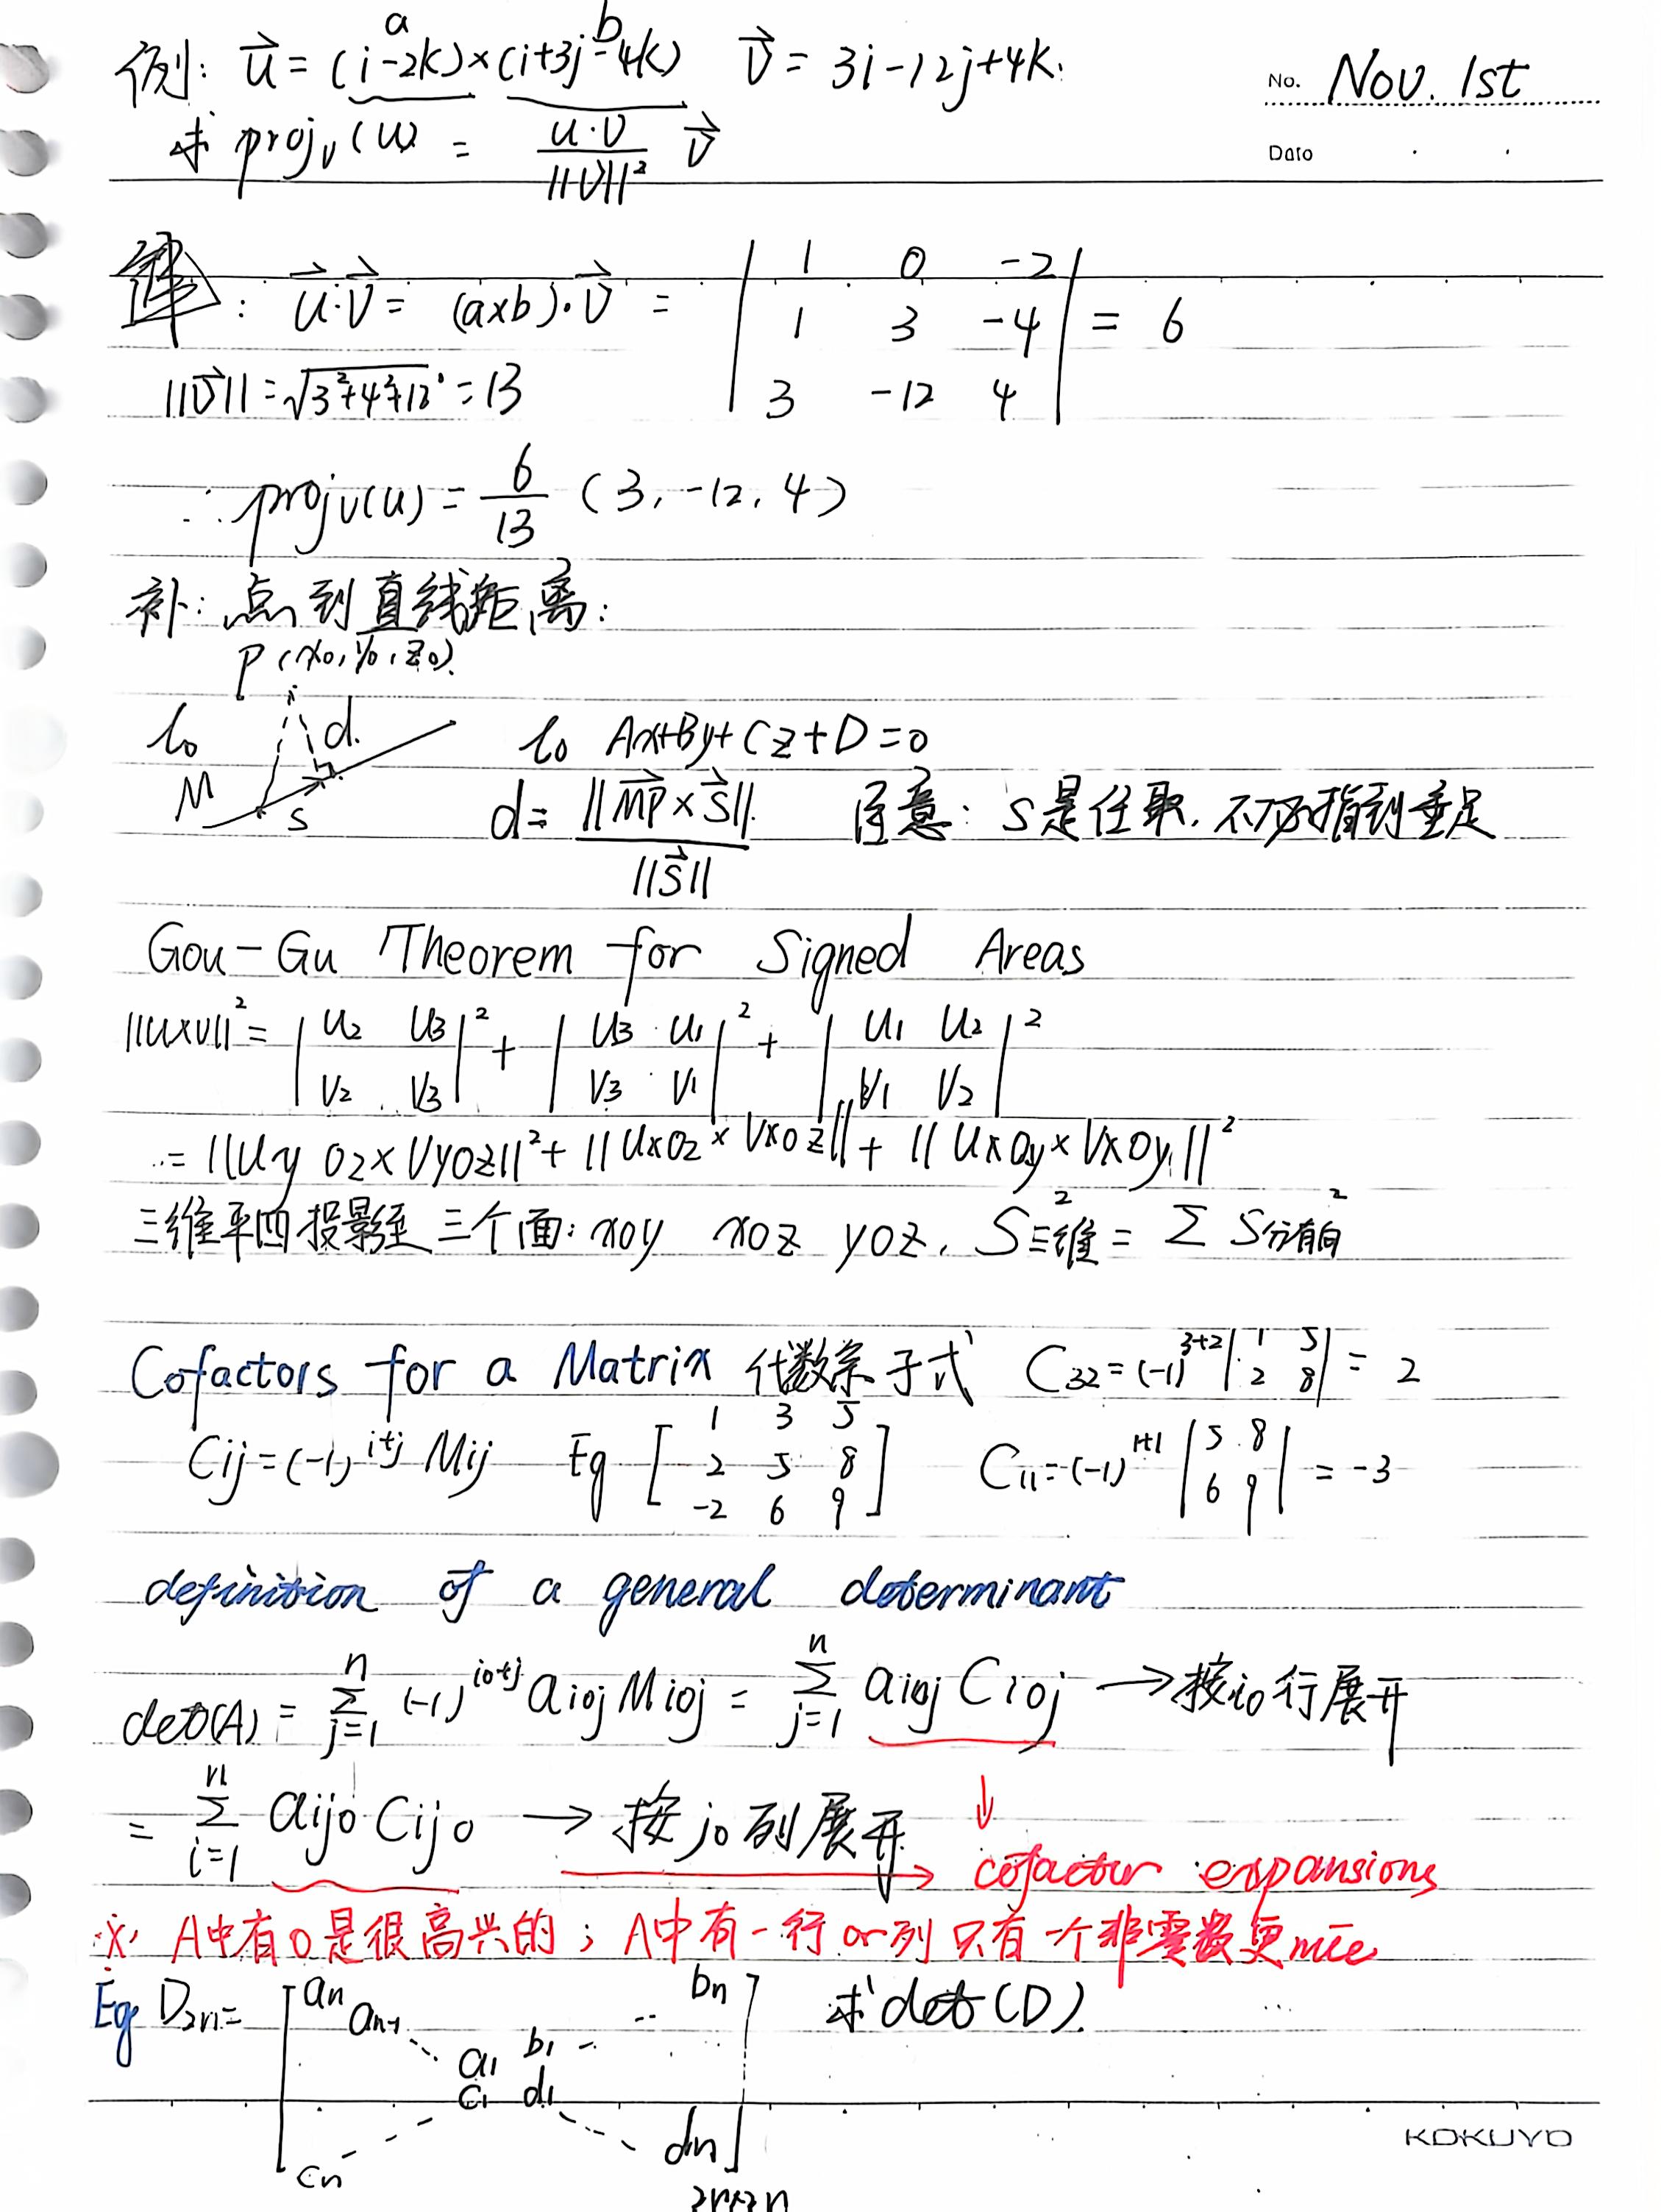 No. Nov. 1st
Date
例: u⃗ = (i-2k)×(i+3j-4k) v⃗ = 3i-12j+4k.
a b
求 projᵥ(u) = u·v/||v||² v⃗
解: u⃗·v⃗ = (a×b)·v⃗ = |1 0 -2; 1 3 -4; 3 -12 4| = 6
||v⃗|| = √(3²+4²+12²) = 13
∴ projᵥ(u) = 6/13 (3, -12, 4)
补: 点到直线距离:
P(x₀, y₀, z₀)
l₀ d M s
l₀ Ax+By+Cz+D=0
d = ||MP⃗ × s⃗||/||s⃗|| 注意: s是任取, 不必指到垂足
Gou-Gu Theorem for Signed Areas
||u×v||² = |u₂ u₃; v₂ v₃|² + |u₃ u₁; v₃ v₁|² + |u₁ u₂; v₁ v₂|²
= ||uyoz × vyoz||² + ||uxoz × vxoz|| + ||uxoy × vxoy||²
三维平四投影至三个面: xoy xoz yoz, S²三维 = Σ S²分有向
Cofactors for a Matrix 代数余子式 C₃₂ = (-1)³⁺² |1 5; 2 8| = 2
Cij = (-1)^(i+j) Mij Eg [1 3 5; 2 5 8; -2 6 9] C₁₁ = (-1)¹⁺¹ |5 8; 6 9| = -3
definition of a general determinant
det(A) = Σ(j=1→n) (-1)^(i₀+j) a i₀j M i₀j = Σ(j=1→n) a i₀j C i₀j → 按i₀行展开
= Σ(i=1→n) a ij₀ C ij₀ → 按j₀列展开
→ ↓ cofactor expansions
※ A中有0是很高兴的; A中有一行or列只有一个非零数更nice
Eg D₂ₙ = [aₙ bₙ 求det(D).
aₙ₋₁
a₁ b₁
c₁ d₁
cₙ dₙ] 2n×2n
KOKUYO